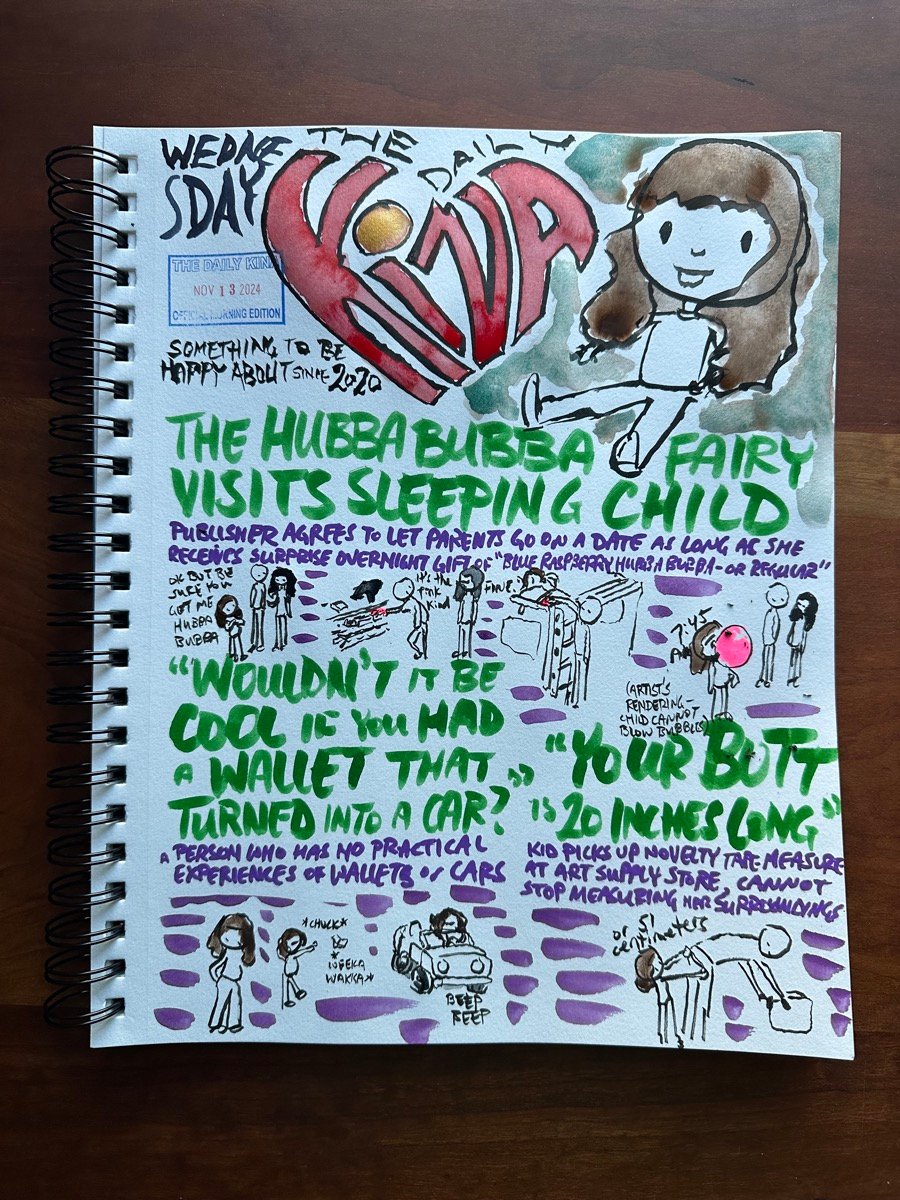 WEDNE
SDAY
THE
DAILY
KINA
THE DAILY KINA
NOV 13 2024
OFFICIAL MORNING EDITION
SOMETHING TO BE
HAPPY ABOUT SINCE 2020
THE HUBBA BUBBA FAIRY
VISITS SLEEPING CHILD
PUBLISHER AGREES TO LET PARENTS GO ON A DATE AS LONG AS SHE
RECEIVES SURPRISE OVERNIGHT GIFT OF "BLUE RASPBERRY HUBBA BUBBA - OR REGULAR"
OK BUT BE
SURE YOU
GET ME
HUBBA
BUBBA
It's the
pink
kind
FINE.
7:45
AM
(ARTIST'S
RENDERING -
CHILD CANNOT
BLOW BUBBLES)
"WOULDN'T IT BE
COOL IF YOU HAD
A WALLET THAT
TURNED INTO A CAR?"
A PERSON WHO HAS NO PRACTICAL
EXPERIENCES OF WALLETS OR CARS
*CHUCK*
*WEEKA
WAKKA*
BEEP
BEEP
"YOUR BUTT
IS 20 INCHES LONG"
KID PICKS UP NOVELTY TAPE MEASURE
AT ART SUPPLY STORE, CANNOT
STOP MEASURING HER SURROUNDINGS
or 51
centimeters